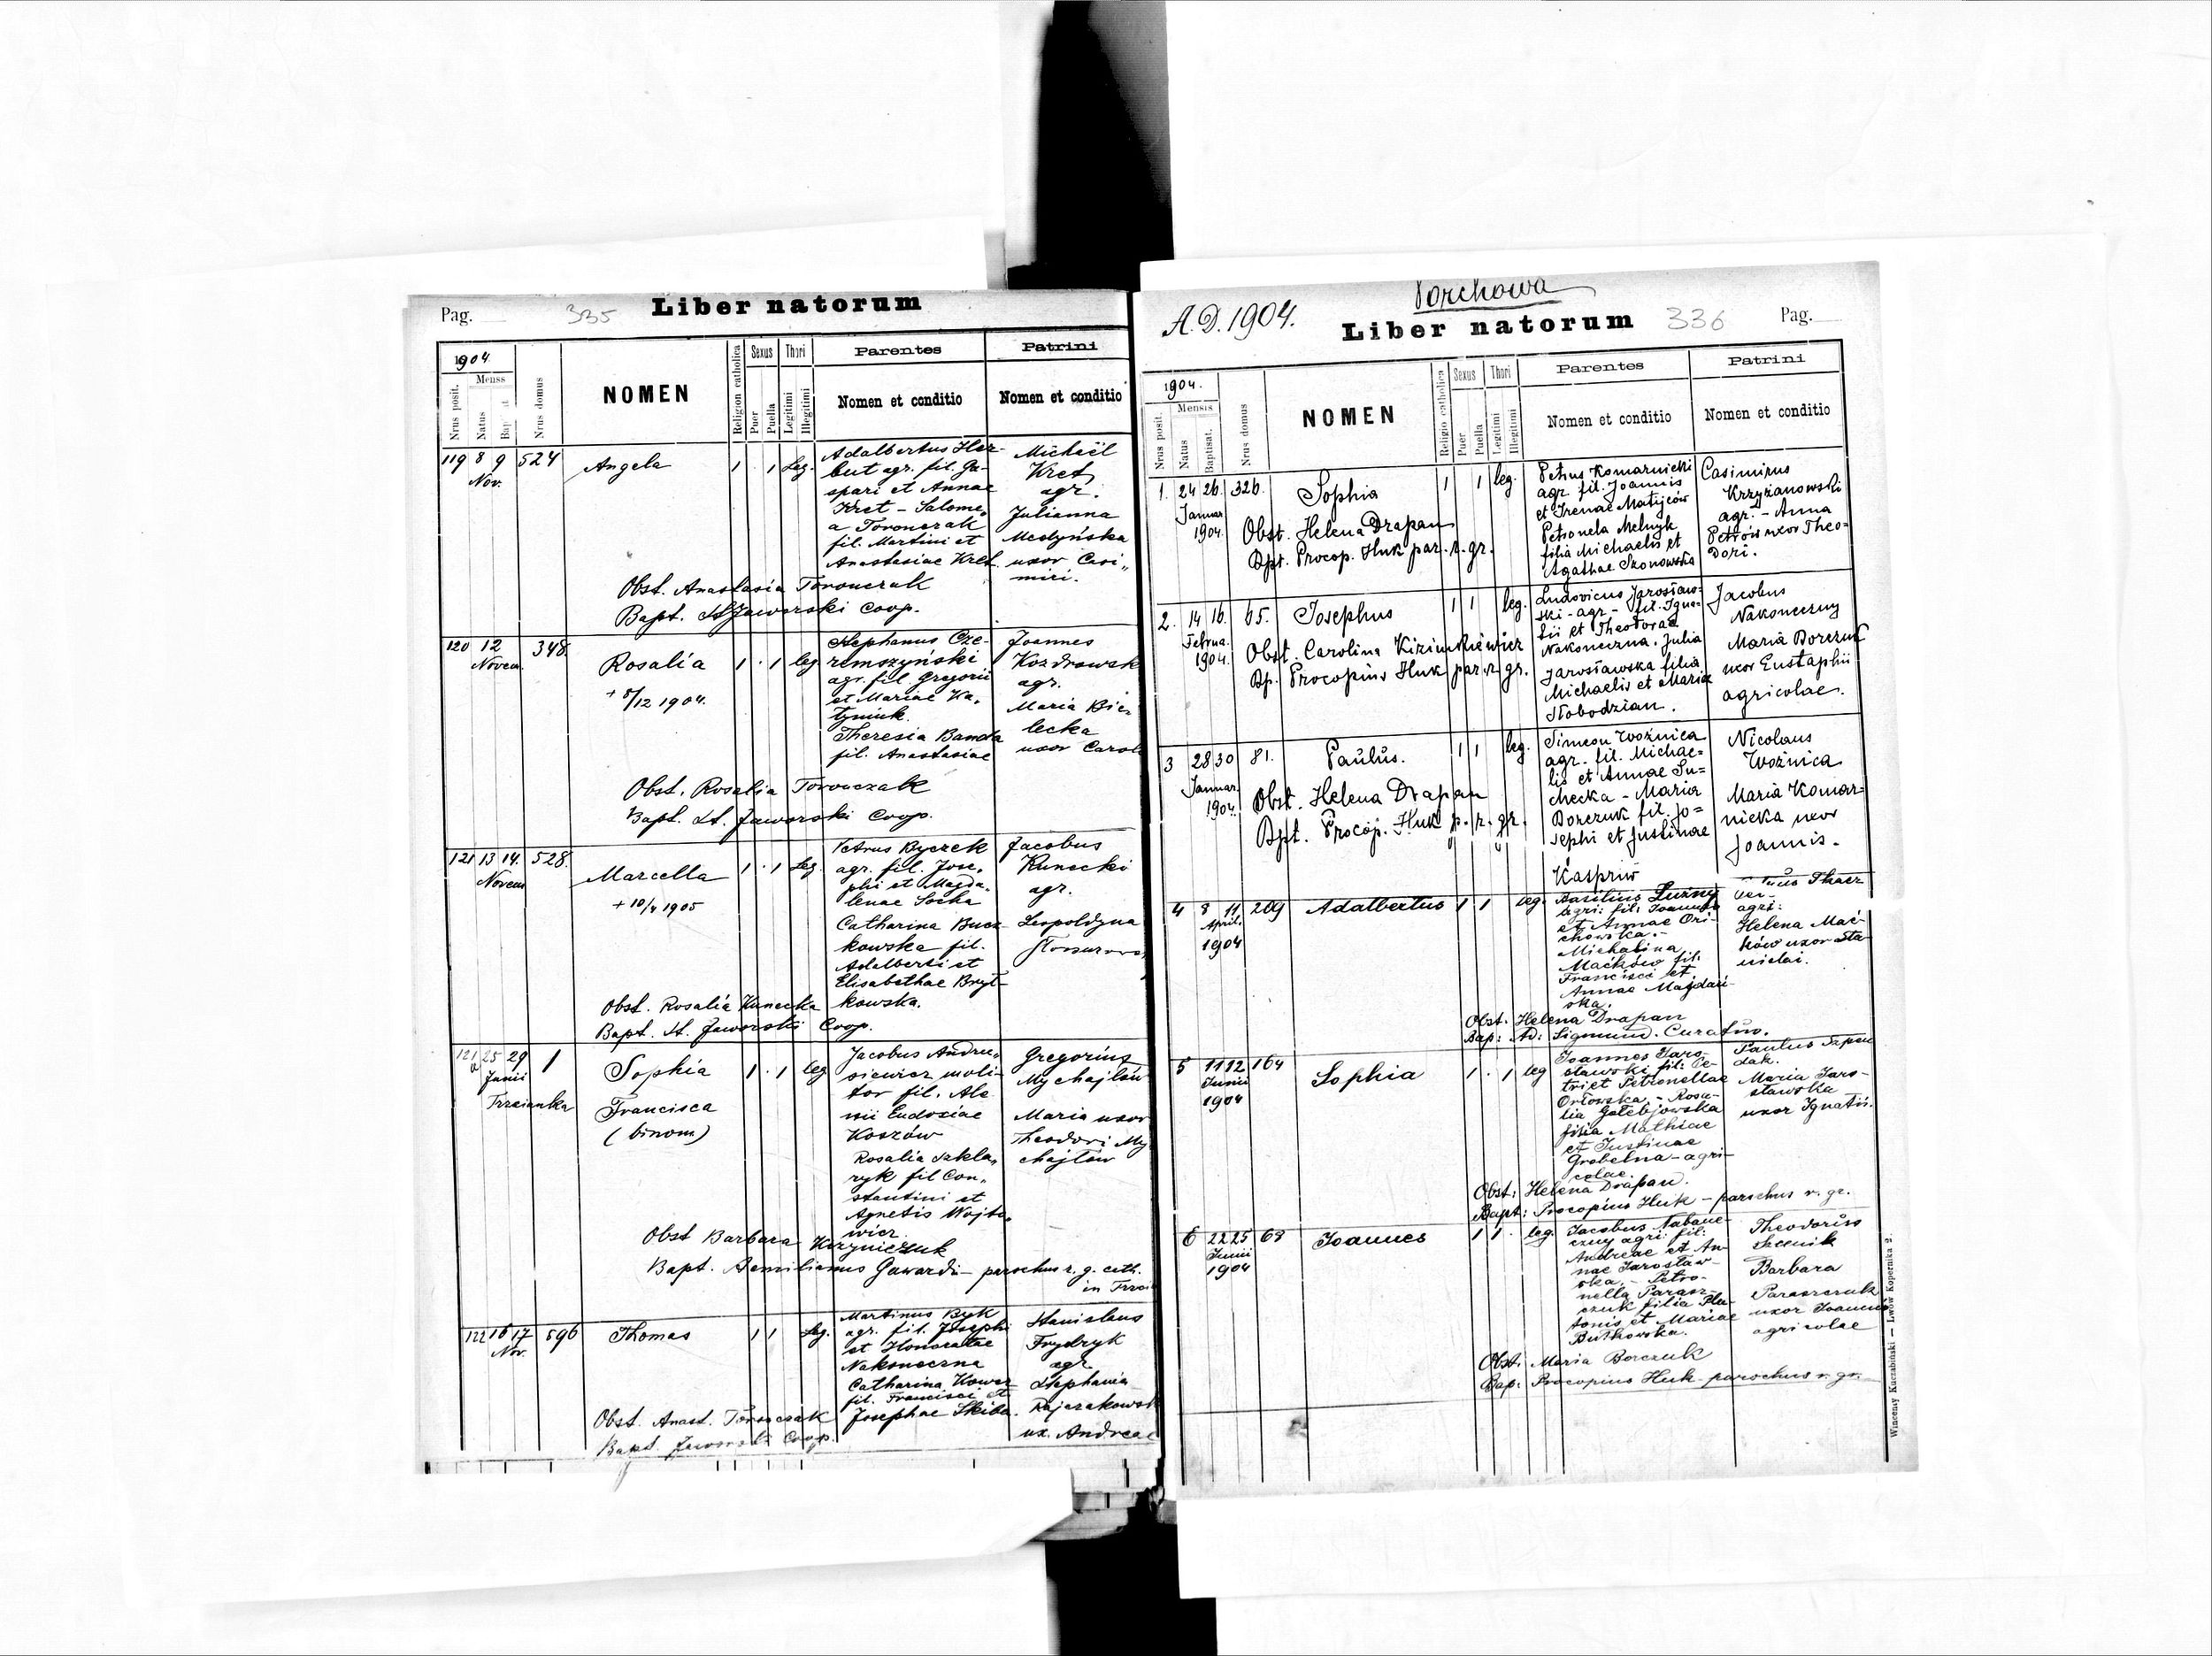 Pag. 335 Liber natorum
1904
Nrus posit.
Menss
Natus
Nrus domus
NOMEN
Religion catholica
Sexus
Puer
Puella
Thori
Legitimi
Illegitimi
Parentes
Nomen et conditio
Patrini
Nomen et conditio
119 8 9 524
Nov.
Angela
1 1 Leg.
Adalbertus Her-
but agr. fil. Ga-
spari et Annae
Kret - Salome,
a Toronczak
fil. Martini et
Anastasiae Kret
Michaël
Kret
agr.
Julianna
Medyńska
uxor Casi„
miri.
Obst. Anastasia Toronczak
Bapt. St Jaworski Coop.
120 12 348
Novem
Rosalia
+ 8/12 1904.
1 . 1 leg
Stephanus Cze-
remszyński
agr. fil. Gregorii
et Mariae Wa,
tyniuk.
Theresia Banda
fil. Anastasiae
Joannes
Kozdrowsk
agr.
Maria Bie-
lecka
uxor Carol
Obst. Rosalia Toronczak
Bapt. St. Jaworski Coop.
121 13 14. 528.
Novem
Marcella
+ 10/4 1905
1 . 1 Leg.
Petrus Byczek
agr. fil. Jose,
phi et Magda,
lenae Socha
Catharina Bucz-
kowska fil.
Adalberti et
Elisabethae Bryt-
kowska.
Jacobus
Kunecki
agr.
Leopoldyna
Obst. Rosalia Kunecka
Bapt. St. Jaworski Coop.
121 a 25 29 1
Junii
Trzcianka
Sophia
Francisca
(binom)
1 . 1 leg
Jacobus Andru,
siewicz moli-
tor fil. Ale
xii Eudosiae
Koszów
Rosalia Szkla,
ryk fil Con,
stantini et
Agnetis Wojto,
wicz
Gregorius
Mychajlów
Maria uxor
Theodori My
chajlów
Obst Barbara Krzyniczuk
Bapt. Aemilianus Gawardi - parochus r. g. cath.
in Trzci
122 16 17 596
Nov.
Thomas
1 1 Leg.
Martinus Byk
agr. fil. Josephi
et Honoratae
Nakoneczna
Catharina Kowcz
fil. Francisci et
Josephae Skiba.
Stanislaus
Frydryk
agr
Stephania
Rajczakowsk
ux. Andreae
Obst. Anast. Toronczak
Bapt. Jaworski Coop.
A.D. 1904. Porchowa
Liber natorum 336 Pag.
1904.
Nrus posit.
Mensis
Natus
Baptisat.
Nrus domus
NOMEN
Religio catholica
Sexus
Puer
Puella
Thori
Legitimi
Illegitimi
Parentes
Nomen et conditio
Patrini
Nomen et conditio
1. 24 26. 326.
Januar
1904.
Sophia
1 1 leg.
Petrus Komarnicki
agr. fil. Joannis
et Irenae Matijców
Petronela Melnyk
filia Michaelis et
Agathae Szonowska
Casimirus
Krzyżanowski
agr. - Anna
Petrów uxor Theo=
dori.
Obst. Helena Drapan
Bpt. Procop. Huk par. r. gr.
2. 14 16. 65.
Februa.
1904.
Josephus
1 1 leg.
Ludovicus Jarosław-
ski - agr - fil. Igna-
tii et Theodorae
Nakoneczna. Julia
Jarosławska filia
Michaelis et Maria
Słobodzian.
Jacobus
Nakoneczny
Maria Borczuk
uxor Eustaphii
agricolae.
Obst. Carolina Kizimkiewicz
Bp. Procopius Huk par. r. gr.
3 28 30 81.
Januar.
1904.
Paulus.
1 1 leg.
Simeon Woźnica
agr. fil. Michae=
lis et Annae Su=
checka - Maria
Borczuk fil. Jo=
sephi et Justinae
Kaspriw
Nicolaus
Woźnica
Maria Komar=
nicka uxor
Joannis.
Obst. Helena Drapan
Bpt. Procop. Huk p. r. gr.
4 8 11 209
April.
1904
Adalbertus
1 1 leg.
Basilius Luźny
agri: fil: Joannis
et Annae Ori-
chowska. -
Michalina
Maćków fil:
Francisci et
Annae Majdań-
ska.
Tkacz
agri:
Helena Mać-
ków uxor Sta-
nislai.
Obst: Helena Drapan
Bap: Ad: Sigmund. Curatus.
5 11 12 164
Junii
1904
Sophia
1 . 1 leg
Joannes Jaro-
sławski fil: Pe-
tri et Petronellae
Orłowska, - Rosa-
lia Gołebjowska
filia Mathiae
et Justinae
Grobelna - agri-
colae.
Paulus Szpon
dak.
Maria Jaro-
sławska
uxor Ignatii.
Obst: Helena Drapan.
Bapt: Procopius Huk - parochus r. gr.
6 22 25 68
Junii
1904
Joannes
1 1 . leg.
Jacobus Nakone-
czny agri: fil:
Andreae et An-
nae Jarosław-
ska, - Petro-
nella Parasz-
czuk filia Pla-
tonis et Mariae
Butkowska.
Theodorus
Barbara
Paraszczuk
uxor Joannis
agricolae
Obst: Maria Borczuk
Bap: Procopius Huk - parochus r. gr.
Wincenty Kuczabiński — Lwów Kopernika 2.